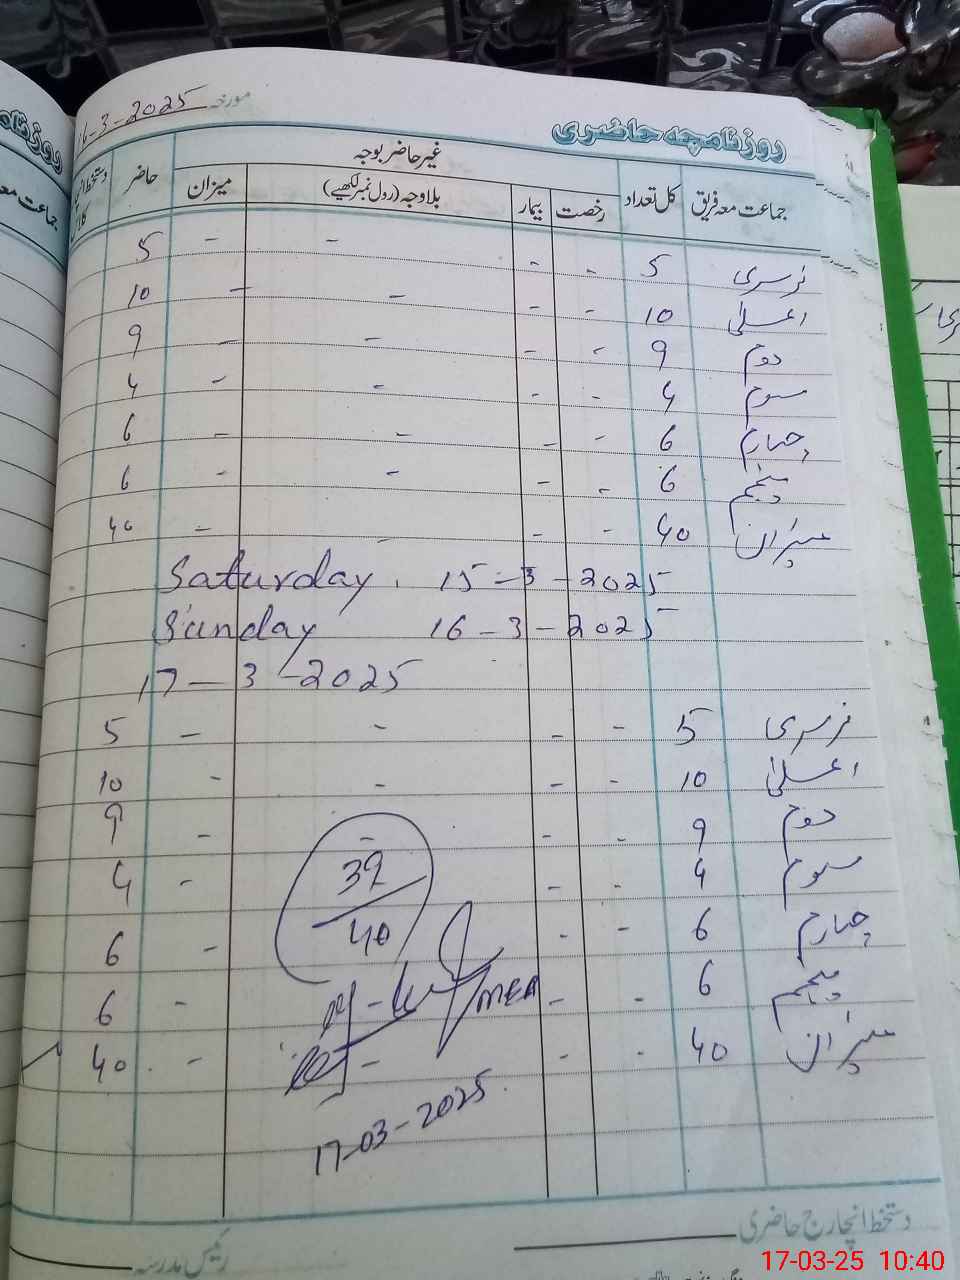 مورخہ 16-3-2025
روزنامچہ حاضری
جماعت معہ فریق کل تعداد غیر حاضر بوجہ حاضر
رخصت بیمار بلاوجہ (رول نمبر لکھیے) میزان
نرسری 5 - - - - 5
اعلیٰ 10 - - - - 10
دوم 9 - - - - 9
سوم 4 - - - - 4
چہارم 6 - - - - 6
پنجم 6 - - - - 6
میزان 40 - - - - 40
Saturday. 15-3-2025
Sunday 16-3-2025
17-3-2025
نرسری 5 - - - - 5
اعلیٰ 10 - - - - 10
دوم 9 - - - 9
سوم 4 - - - 4
چہارم 6 - - - 6
پنجم 6 - - - 6
میزان 40 - - - - 40
39
40
MEA
17-03-2025.
دستخط انچارج حاضری
رئیس مدرسہ
17-03-25 10:40